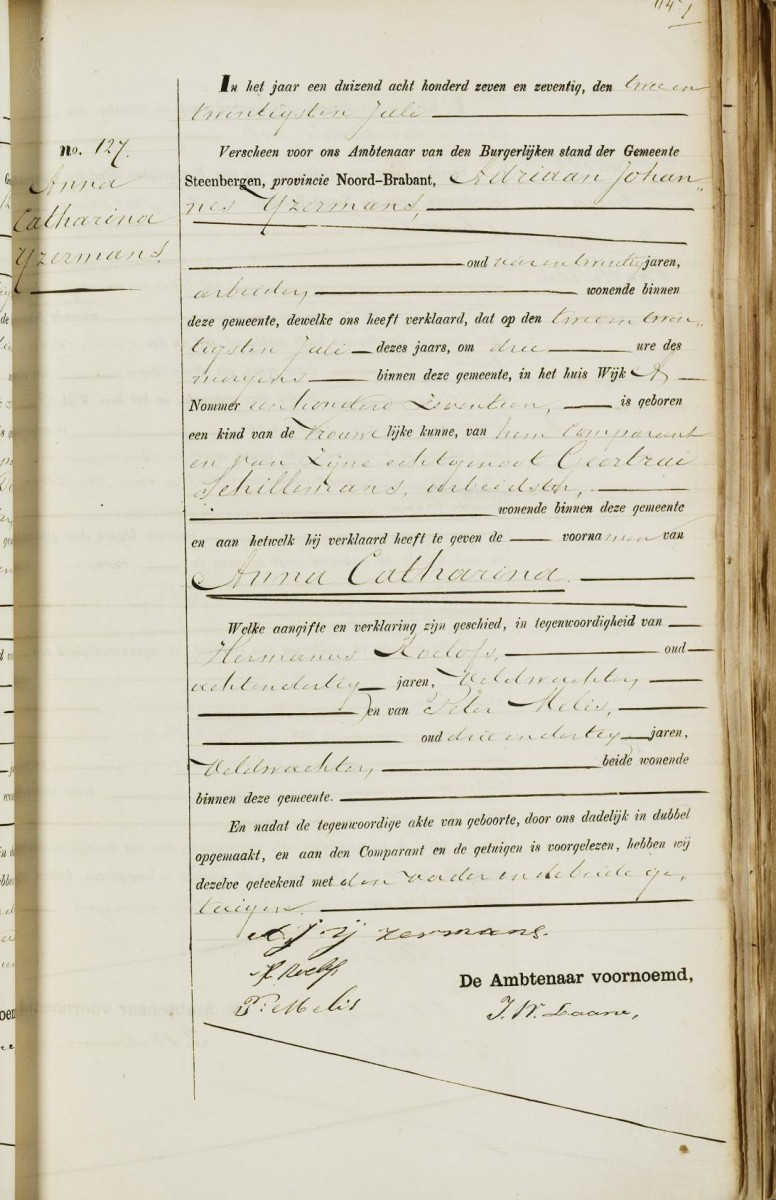 In het jaar een duizend acht honderd zeven en zeventig, den twee en
twintigsten Juli
No. 127.
Anna
Catharina
Yzermans.
Verscheen voor ons Ambtenaar van den Burgerlijken stand der Gemeente
Steenbergen, provincie Noord-Brabant, Adriaan Johan„
nes Yzermans,
oud en twintig jaren,
arbeider, wonende binnen
deze gemeente, dewelke ons heeft verklaard, dat op den twee en twin„
tigsten Juli dezes jaars, om drie ure des
morgens binnen deze gemeente, in het huis Wijk A
Nommer een honderd zeventien, is geboren
een kind van de vrouwelijke kunne, van hem comparant
en van zijne echtgenoot Geertrui
Schillemans, arbeidster,
wonende binnen deze gemeente
en aan hetwelk hij verklaard heeft te geven de voornamen van
Anna Catharina.
Welke aangifte en verklaring zijn geschied, in tegenwoordigheid van
Hermanus Roelofs, oud
achtendertig jaren, Veldwachter,
en van Peter Melis,
oud drie en dertig jaren,
Veldwachter, beide wonende
binnen deze gemeente.
En nadat de tegenwoordige akte van geboorte, door ons dadelijk in dubbel
opgemaakt, en aan den Comparant en de getuigen is voorgelezen, hebben wij
dezelve geteekend met den vader en de beide ge„
tuigen.
A J IJzermans.
H Roelofs
P: Melis
De Ambtenaar voornoemd,
J. W. Laane,